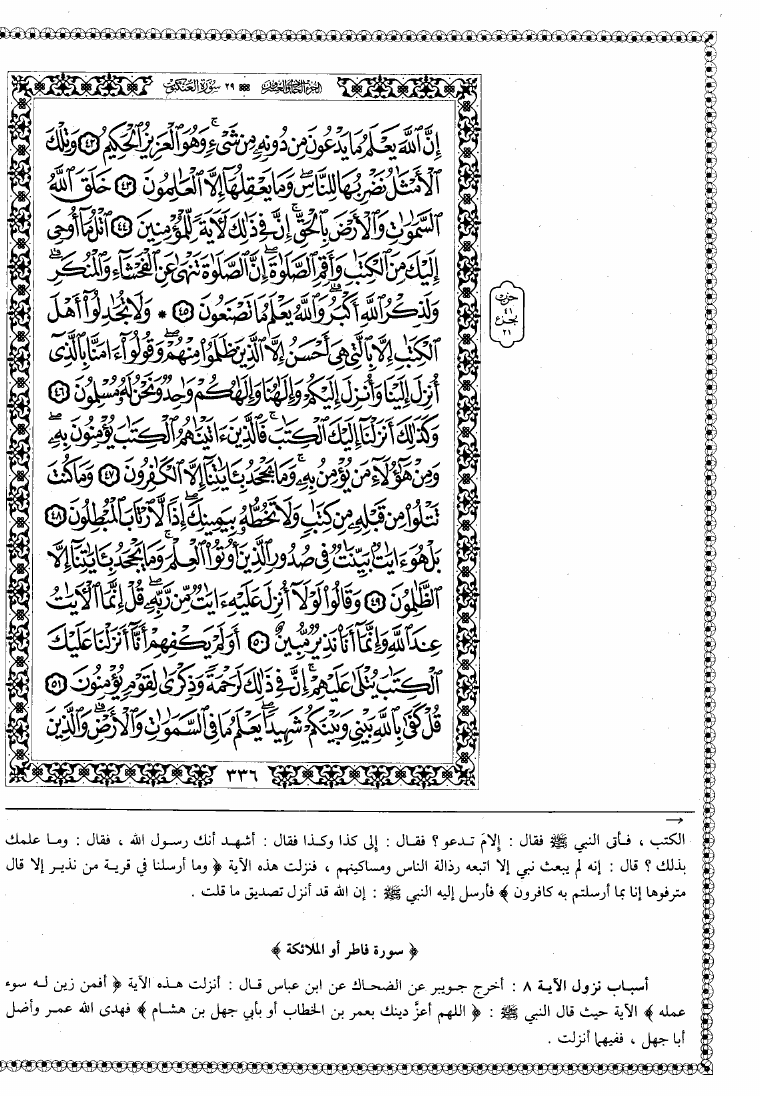 الجزء الحادي والعشرون ٢٩ سورة العنكبوت
إِنَّ ٱللَّهَ يَعْلَمُ مَا يَدْعُونَ مِن دُونِهِۦ مِن شَىْءٍ ۚ وَهُوَ ٱلْعَزِيزُ ٱلْحَكِيمُ ٤٢ وَتِلْكَ
ٱلْأَمْثَٰلُ نَضْرِبُهَا لِلنَّاسِ ۖ وَمَا يَعْقِلُهَآ إِلَّا ٱلْعَٰلِمُونَ ٤٣ خَلَقَ ٱللَّهُ
ٱلسَّمَٰوَٰتِ وَٱلْأَرْضَ بِٱلْحَقِّ ۚ إِنَّ فِى ذَٰلِكَ لَءَايَةً لِّلْمُؤْمِنِينَ ٤٤ ٱتْلُ مَآ أُوحِىَ
إِلَيْكَ مِنَ ٱلْكِتَٰبِ وَأَقِمِ ٱلصَّلَوٰةَ ۖ إِنَّ ٱلصَّلَوٰةَ تَنْهَىٰ عَنِ ٱلْفَحْشَآءِ وَٱلْمُنكَرِ ۗ
وَلَذِكْرُ ٱللَّهِ أَكْبَرُ ۗ وَٱللَّهُ يَعْلَمُ مَا تَصْنَعُونَ ٤٥ * وَلَا تُجَٰدِلُوٓا۟ أَهْلَ
ٱلْكِتَٰبِ إِلَّا بِٱلَّتِى هِىَ أَحْسَنُ إِلَّا ٱلَّذِينَ ظَلَمُوا۟ مِنْهُمْ ۖ وَقُولُوٓا۟ ءَامَنَّا بِٱلَّذِىٓ
أُنزِلَ إِلَيْنَا وَأُنزِلَ إِلَيْكُمْ وَإِلَٰهُنَا وَإِلَٰهُكُمْ وَٰحِدٌ وَنَحْنُ لَهُۥ مُسْلِمُونَ ٤٦
وَكَذَٰلِكَ أَنزَلْنَآ إِلَيْكَ ٱلْكِتَٰبَ ۚ فَٱلَّذِينَ ءَاتَيْنَٰهُمُ ٱلْكِتَٰبَ يُؤْمِنُونَ بِهِۦ ۖ
وَمِنْ هَٰٓؤُلَآءِ مَن يُؤْمِنُ بِهِۦ ۚ وَمَا يَجْحَدُ بِـَٔايَٰتِنَآ إِلَّا ٱلْكَٰفِرُونَ ٤٧ وَمَا كُنتَ
تَتْلُوا۟ مِن قَبْلِهِۦ مِن كِتَٰبٍ وَلَا تَخُطُّهُۥ بِيَمِينِكَ ۖ إِذًا لَّٱرْتَابَ ٱلْمُبْطِلُونَ ٤٨
بَلْ هُوَ ءَايَٰتٌۢ بَيِّنَٰتٌ فِى صُدُورِ ٱلَّذِينَ أُوتُوا۟ ٱلْعِلْمَ ۚ وَمَا يَجْحَدُ بِـَٔايَٰتِنَآ إِلَّا
ٱلظَّٰلِمُونَ ٤٩ وَقَالُوا۟ لَوْلَآ أُنزِلَ عَلَيْهِ ءَايَٰتٌ مِّن رَّبِّهِۦ ۖ قُلْ إِنَّمَا ٱلْءَايَٰتُ
عِندَ ٱللَّهِ وَإِنَّمَآ أَنَا۠ نَذِيرٌ مُّبِينٌ ٥٠ أَوَلَمْ يَكْفِهِمْ أَنَّآ أَنزَلْنَا عَلَيْكَ
ٱلْكِتَٰبَ يُتْلَىٰ عَلَيْهِمْ ۚ إِنَّ فِى ذَٰلِكَ لَرَحْمَةً وَذِكْرَىٰ لِقَوْمٍ يُؤْمِنُونَ ٥١
قُلْ كَفَىٰ بِٱللَّهِ بَيْنِى وَبَيْنَكُمْ شَهِيدًا ۖ يَعْلَمُ مَا فِى ٱلسَّمَٰوَٰتِ وَٱلْأَرْضِ ۗ وَٱلَّذِينَ
٣٣٦
حزب
٤١
جزء
٢١
الكتب ، فأتى النبي ﷺ فقال : إلامَ تدعو ؟ فقال : إلى كذا وكذا فقال : أشهد أنك رسول الله ، فقال : وما علمك
بذلك ؟ قال : إنه لم يبعث نبي إلا اتبعه رذالة الناس ومساكينهم ، فنزلت هذه الآية ﴿ وما أرسلنا في قرية من نذير إلا قال
مترفوها إنا بما أرسلتم به كافرون ﴾ فأرسل إليه النبي ﷺ : إن الله قد أنزل تصديق ما قلت .
﴿ سورة فاطر أو الملائكة ﴾
أسباب نزول الآية ٨ : أخرج جويبر عن الضحاك عن ابن عباس قال : أنزلت هذه الآية ﴿ أفمن زين له سوء
عمله ﴾ الآية حيث قال النبي ﷺ : ﴿ اللهم أعزَّ دينك بعمر بن الخطاب أو بأبي جهل بن هشام ﴾ فهدى الله عمر وأضل
أبا جهل ، ففيهما أنزلت .